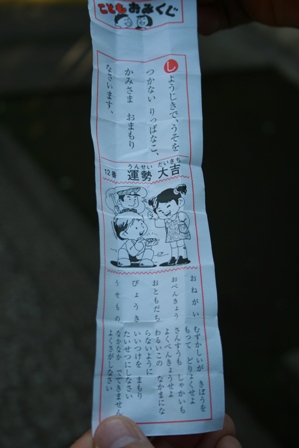 こどもおみくじ
しょうじきで、うそを
つかない りっぱなこ、
かみさま おまもり
なさいます。
12番 運勢 大吉
うんせい だいきち
おねがい むずかしいが きぼうを
もって どりょくせよ
おべんきょう さんすうも しゃかいも
よくべんきょうせよ
おともだち わるいこの なかまにな
らないように
びょうき いいつけを まもり
たいせつにしなさい
うせもの なかなか でてきません
よくさがしなさい